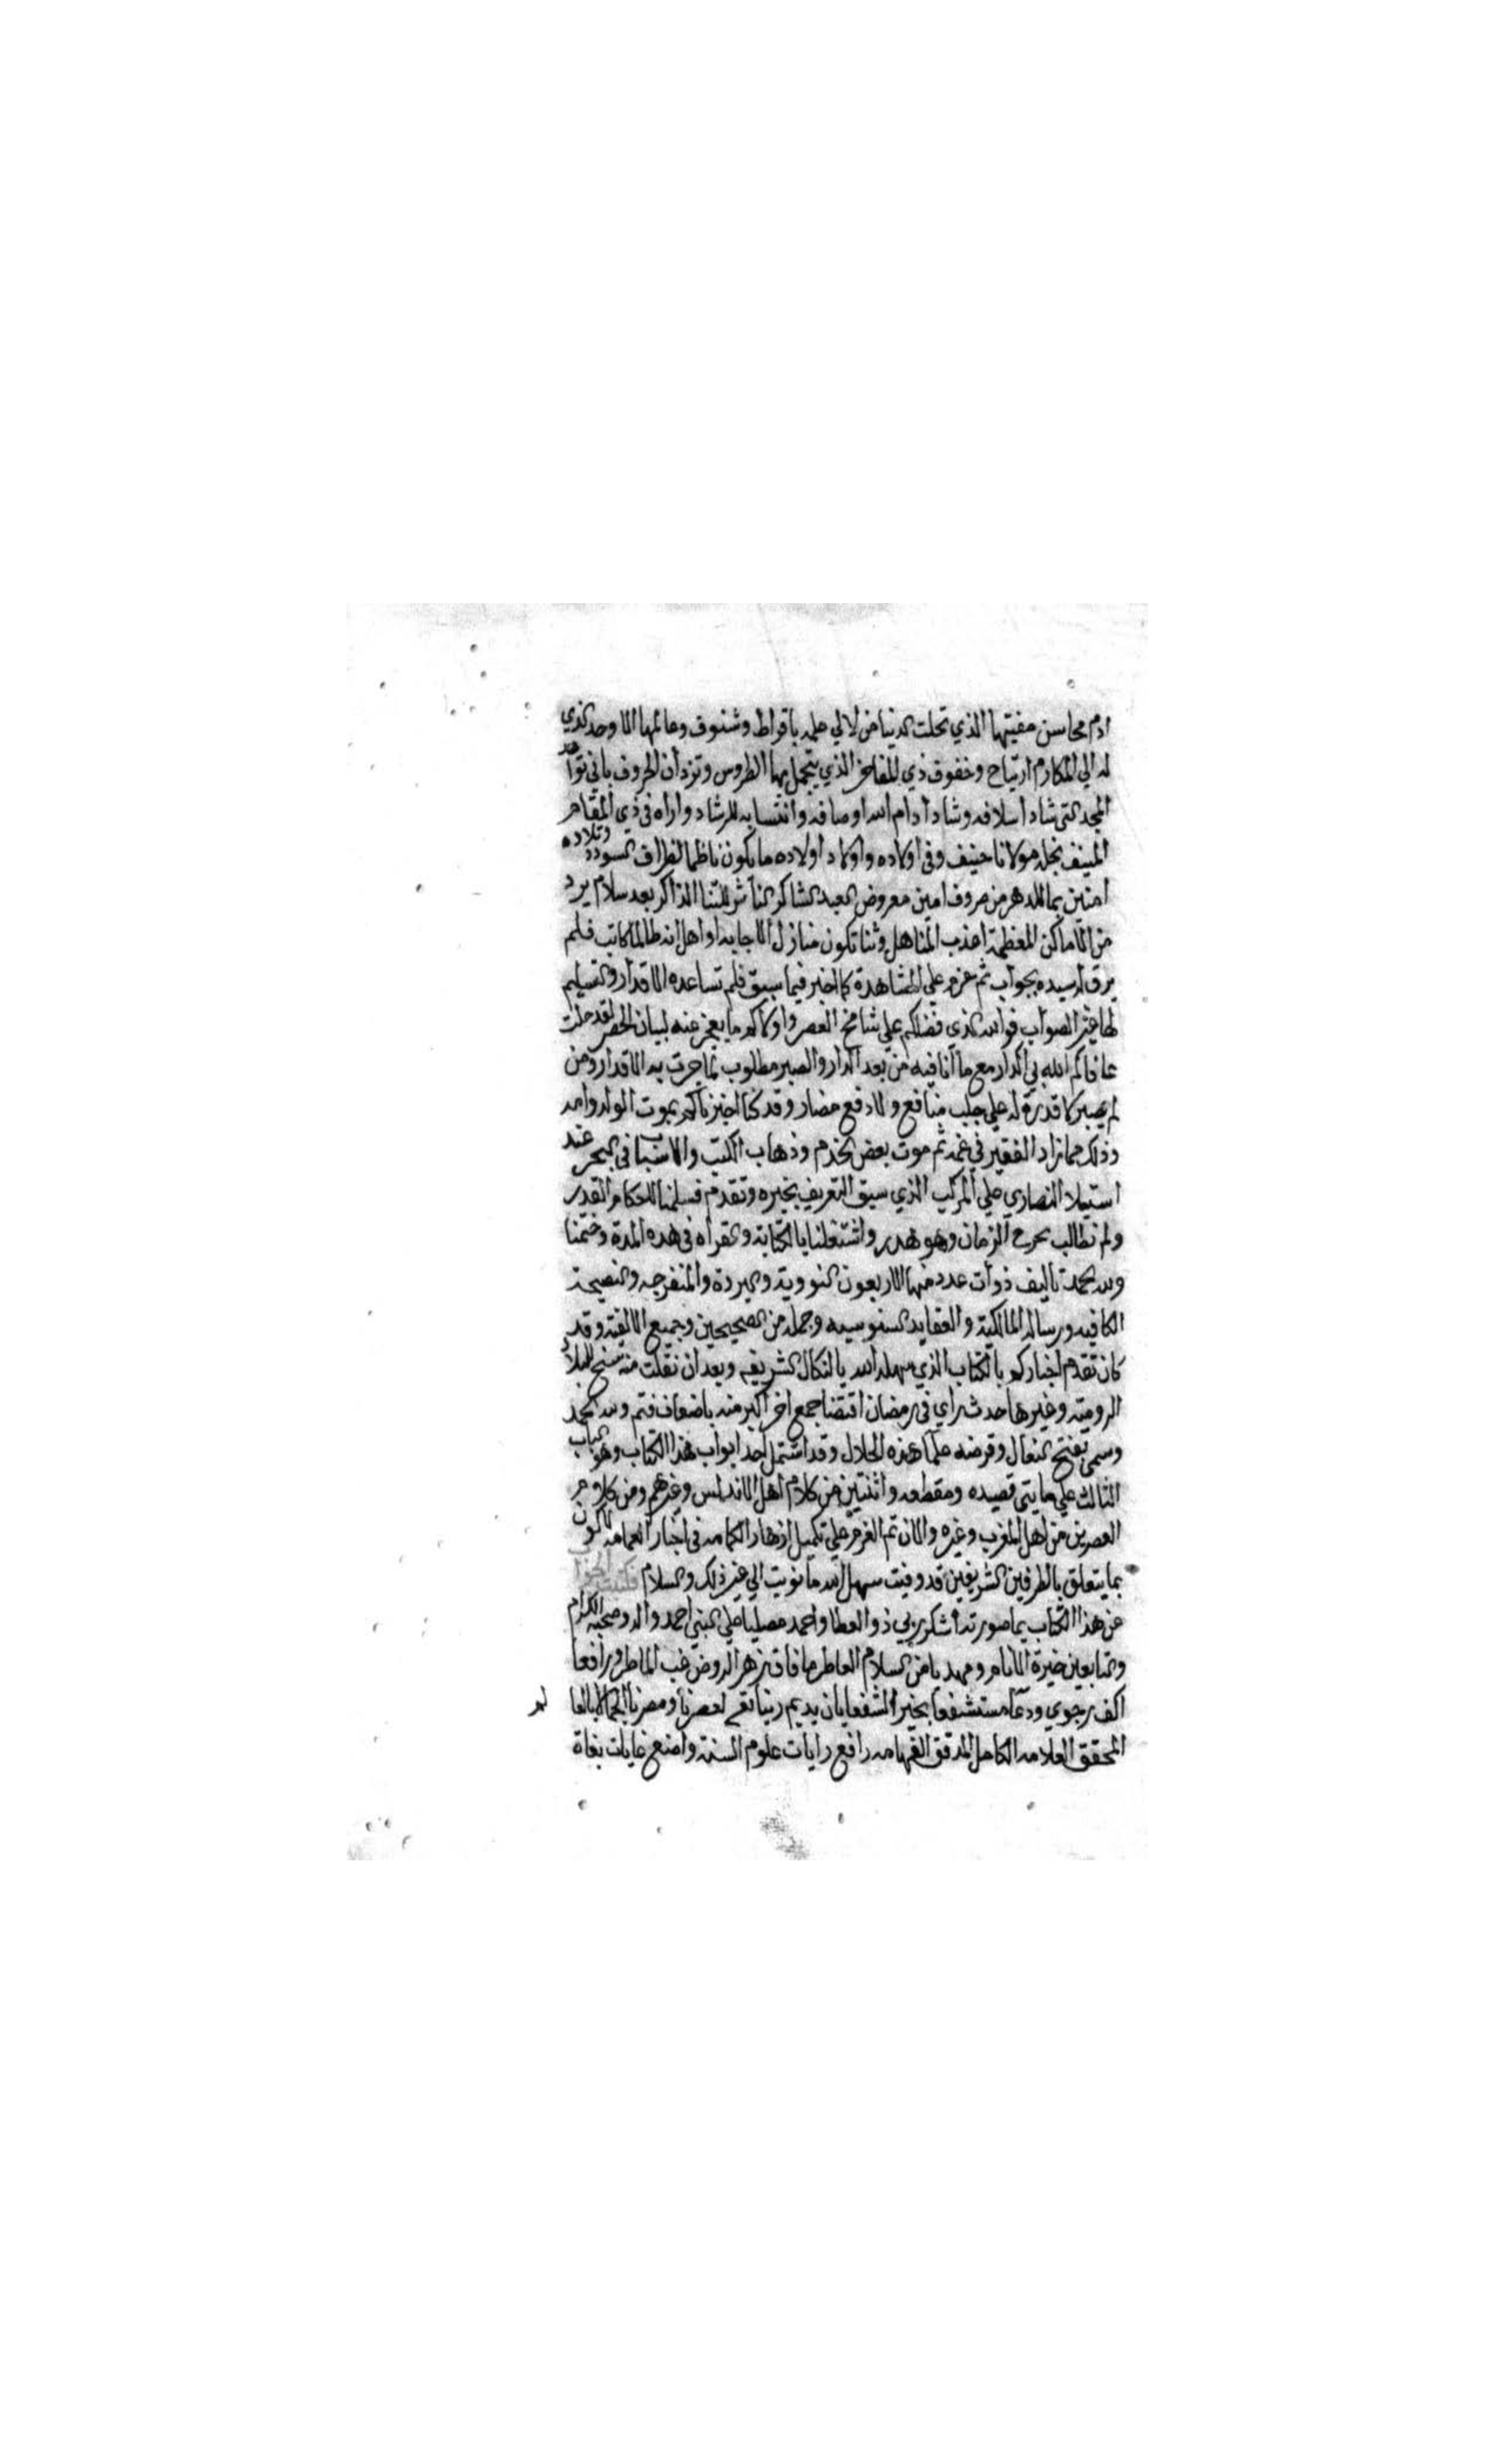 ادم محاسن مفيتها الذي تحلت الدنيا من لالي علمه باقراط وشنوف وعالمها الاوحد الذي
له الي المكارم ارتياح وخفوف ذي المفاخر الذي يتجمل بها الطروس وتزدان الحروف باني
المجد التى شاد اسلافه وشاد ادام الله اوصافه وانتسابه للرشاد واراه في ذي المقام
المنيف نجله مولانا حنيف وفي اولاده واولاد اولاده ما يكون ناظما لطراف السودد وتلاده
امنين بما للدهر من صروف امين معروض العبد الشاكر الناشر للثنا الذاكر بعد سلام يرد
من الاماكن المعظمة اعذب المناهل وثنا تكون منازل الاجابه اواهل انه طالما كاتب فلم
يرق له سيده بجواب ثم عزم علي المشاهدة كما اخبر فيما سبق فلم تساعده الاقدار والتسليم
لها عين الصواب فوالله الذي فضلكم علي شامخ العصر واولاكم ما يعجز عنه لبيان الحصر لقد حلت
عافاكم الله بي اكدار مع ما انا فيه من بعد الدار والصبر مطلوب بما جرت به الاقدار ومن
لم يصبر لا قدرة له علي جلب منافع ولا دفع مضار وقد كنا اخبرناكم بموت الولد وامه
وذلك مما زاد الفقير في غمه ثم موت بعض الخدم وذهاب الكتب والاسباب في البحر عند
استيلا النصاري علي المركب الذي سبق التعريف بخبره وتقدم فسلمنا للحكام القدر
ولم نطالب بجرح الزمان وهو هدر واشتغلنا بالكتابة والقراه في هذه المدة وختمنا
ولله الحمد تاليف ذوات عدد منها الاربعون النووية والبردة والمنفرجه والنصيحة
الكافيه ورسالة المالكية والعقايد السنوسيه وجمله من الصحيحين وجميع الالفية وقد
كان تقدم اخباركم بالكتاب الذي سهله الله بالنكال الشريفه وبعد ان نقلت منه نسخ للبلاد
الروميه وغيرها حدث راي في رمضان اقتضا جمع اخر اكبر منه باضعاف فتم ولله الحمد
وسمي بفتح المتعال وقرضه علما هذه الحلال وقد اشتمل احد ابواب هذا الكتاب وهو الباب
الثالث علي مايتي قصيده ومقطعه واثنتين من كلام اهل الاندلس وغيرهم ومن كلام
العصرين من اهل المغرب وغيره والان تم العزم علي تكميل ازهار الكمامه في اخبار العمامه لكون
ما يتعلق بالطرفين الشريفين قد وفيت سهل الله ما نويت الي غير ذلك والسلام فكتبت الجواب
عن هذا الكتاب بما صورته اشكر ربي ذو العطا واحمد مصليا علي النبي احمد واله وصحبه الكرام
والتابعين خيرة الانام ومهديا من السلام العاطر ما فاق زهر الروض غب الماطر ورافعا
اكف رجوي ودعا مستشفعا بخير الشفعا بان يديم ربنا تعالي لعصرنا ومصرنا الجمالا بالعا
لم
المحقق العلامه الكامل المدقق الفهامه رافع رايات علوم السنة واضع غايات بغاة